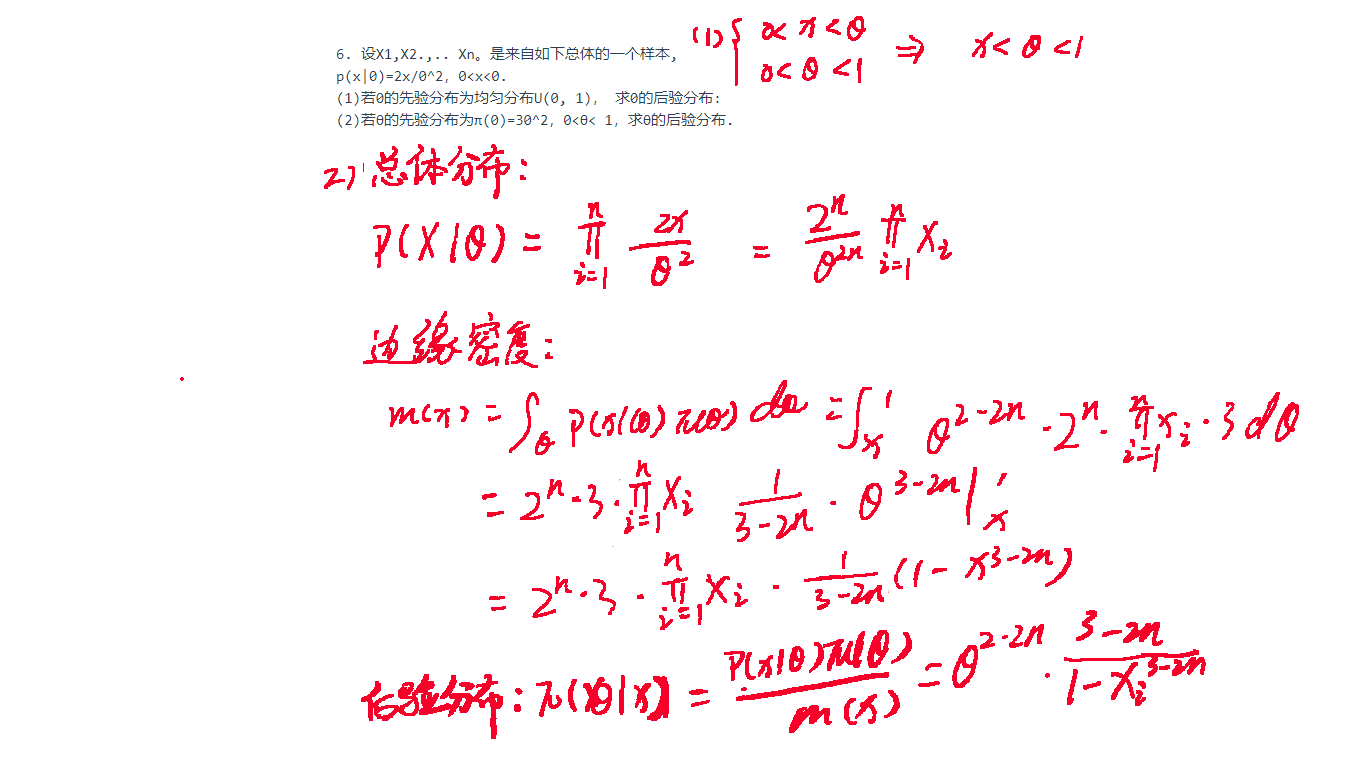 6. 设X1,X2.,.. Xn。是来自如下总体的一个样本,
p(x|0)=2x/0^2, 0<x<0.
(1)若0的先验分布为均匀分布U(0, 1), 求0的后验分布:
(2)若θ的先验分布为π(0)=30^2, 0<θ< 1, 求θ的后验分布.
(1) { 0< x <θ
0< θ <1 ⇒ x< θ <1
2) 总体分布:
P(X|θ) = ∏_{i=1}^{n} 2x/θ^2 = 2^n/θ^{2n} ∏_{i=1}^{n} X_i
边缘密度:
m(x) = ∫_θ P(x|θ) π(θ) dθ = ∫_x^1 θ^{2-2n} · 2^n · ∏_{i=1}^{n} x_i · 3 dθ
= 2^n · 3 · ∏_{i=1}^{n} X_i 1/(3-2n) · θ^{3-2n} |_x^1
= 2^n · 3 · ∏_{i=1}^{n} X_i · 1/(3-2n) (1 - x^{3-2n})
后验分布: π(θ|x) = P(x|θ)π(θ)/m(x) = θ^{2-2n} · (3-2n)/(1-X_i^{3-2n})